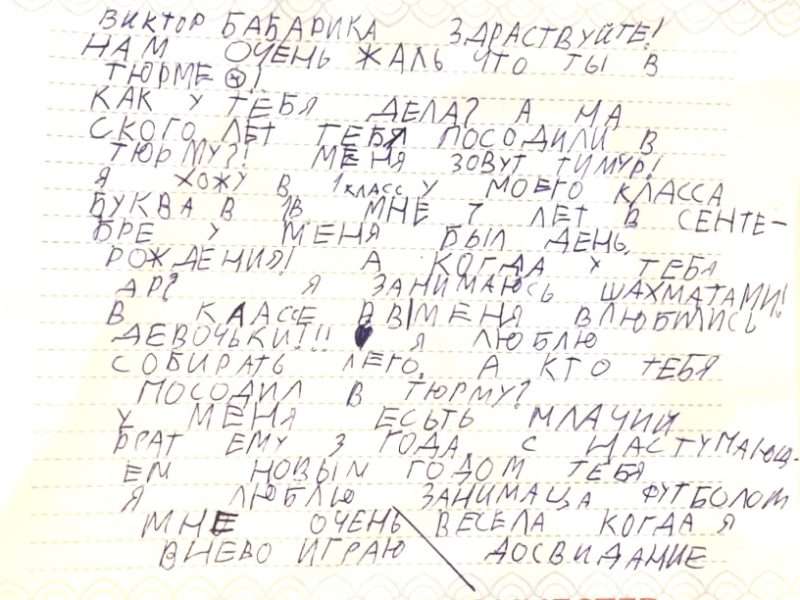 ВИКТОР БАБАРИКА ЗДРАСТВУЙТЕ!
НАМ ОЧЕНЬ ЖАЛЬ ЧТО ТЫ В
ТЮРМЕ ☹!
КАК У ТЕБЯ ДЕЛА? А НА
СКОГО ЛЕТ ТЕБЯ ПОСОДИЛИ В
ТЮРМУ?! МЕНЯ ЗОВУТ ТИМУР!
Я ХОЖУ В 1 КЛАСС У МОЕГО КЛАССА
БУКВА В 1В МНЕ 7 ЛЕТ В СЕНТЕ-
БРЕ У МЕНЯ БЫЛ ДЕНЬ
РОЖДЕНИЯ! А КОГДА У ТЕБЯ
ДР? Я ЗАНИМАЮСЬ ШАХМАТАМИ!
В КЛАССЕ В МЕНЯ ВЛЮБИЛИСЬ
ДЕВОЧЬКИ!!! Я ЛЮБЛЮ
СОБИРАТЬ ЛЕГО. А КТО ТЕБЯ
ПОСОДИЛ В ТЮРМУ?
У МЕНЯ ЕСЬТЬ МЛАЧИЙ
БРАТ ЕМУ 3 ГОДА. С НАСТУПАЮЩ-
ЕМ НОВЫМ ГОДОМ ТЕБЯ
Я ЛЮБЛЮ ЗАНИМАЦА ФУТБОЛОМ
МНЕ ОЧЕНЬ ВЕСЕЛА КОГДА Я
ВНЕВО ИГРАЮ ДОСВИДАНИЕ